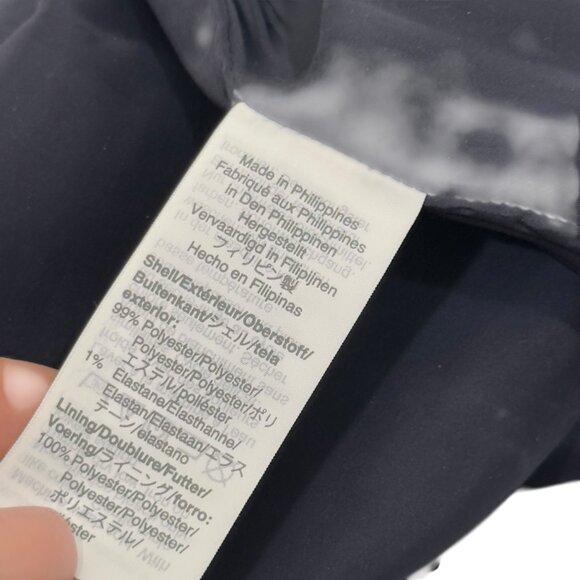 Made in Philippines
Fabriqué aux Philippines
in Den Philippinen
Hergestellt
Vervaardigd in Filipijnen
フィリピン製
Hecho en Filipinas
Shell/Extérieur/Oberstoff/
Buitenkant/シェル/tela
exterior:
99% Polyester/Polyester/
Polyester/Polyester/ポリ
エステル/poliéster
1% Elastane/Elasthanne/
Elastan/Elastaan/エラス
テーン/elastano
Lining/Doublure/Futter/
Voering/ライニング/forro:
100% Polyester/Polyester/
Polyester/Polyester/
ポリエステル/